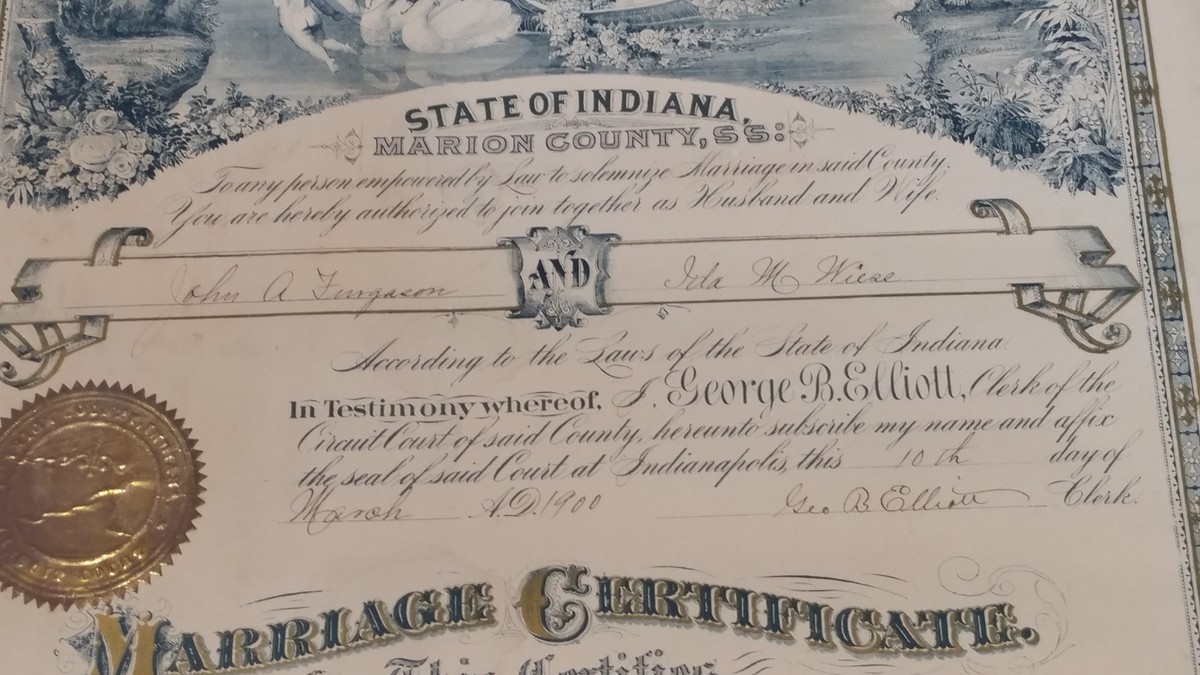 STATE OF INDIANA,
MARION COUNTY, S S:
To any person empowered by Law to solemnize Marriage in said County.
You are hereby authorized to join together as Husband and Wife.
John A Furgason AND Ida M Wiese
According to the Laws of the State of Indiana.
In Testimony whereof, I, George B. Elliott, Clerk of the
Circuit Court of said County, hereunto subscribe my name and affix
the seal of said Court at Indianapolis, this 10th day of
March A.D. 1900 Geo B Elliott Clerk.
MARRIAGE CERTIFICATE.
This Certifies